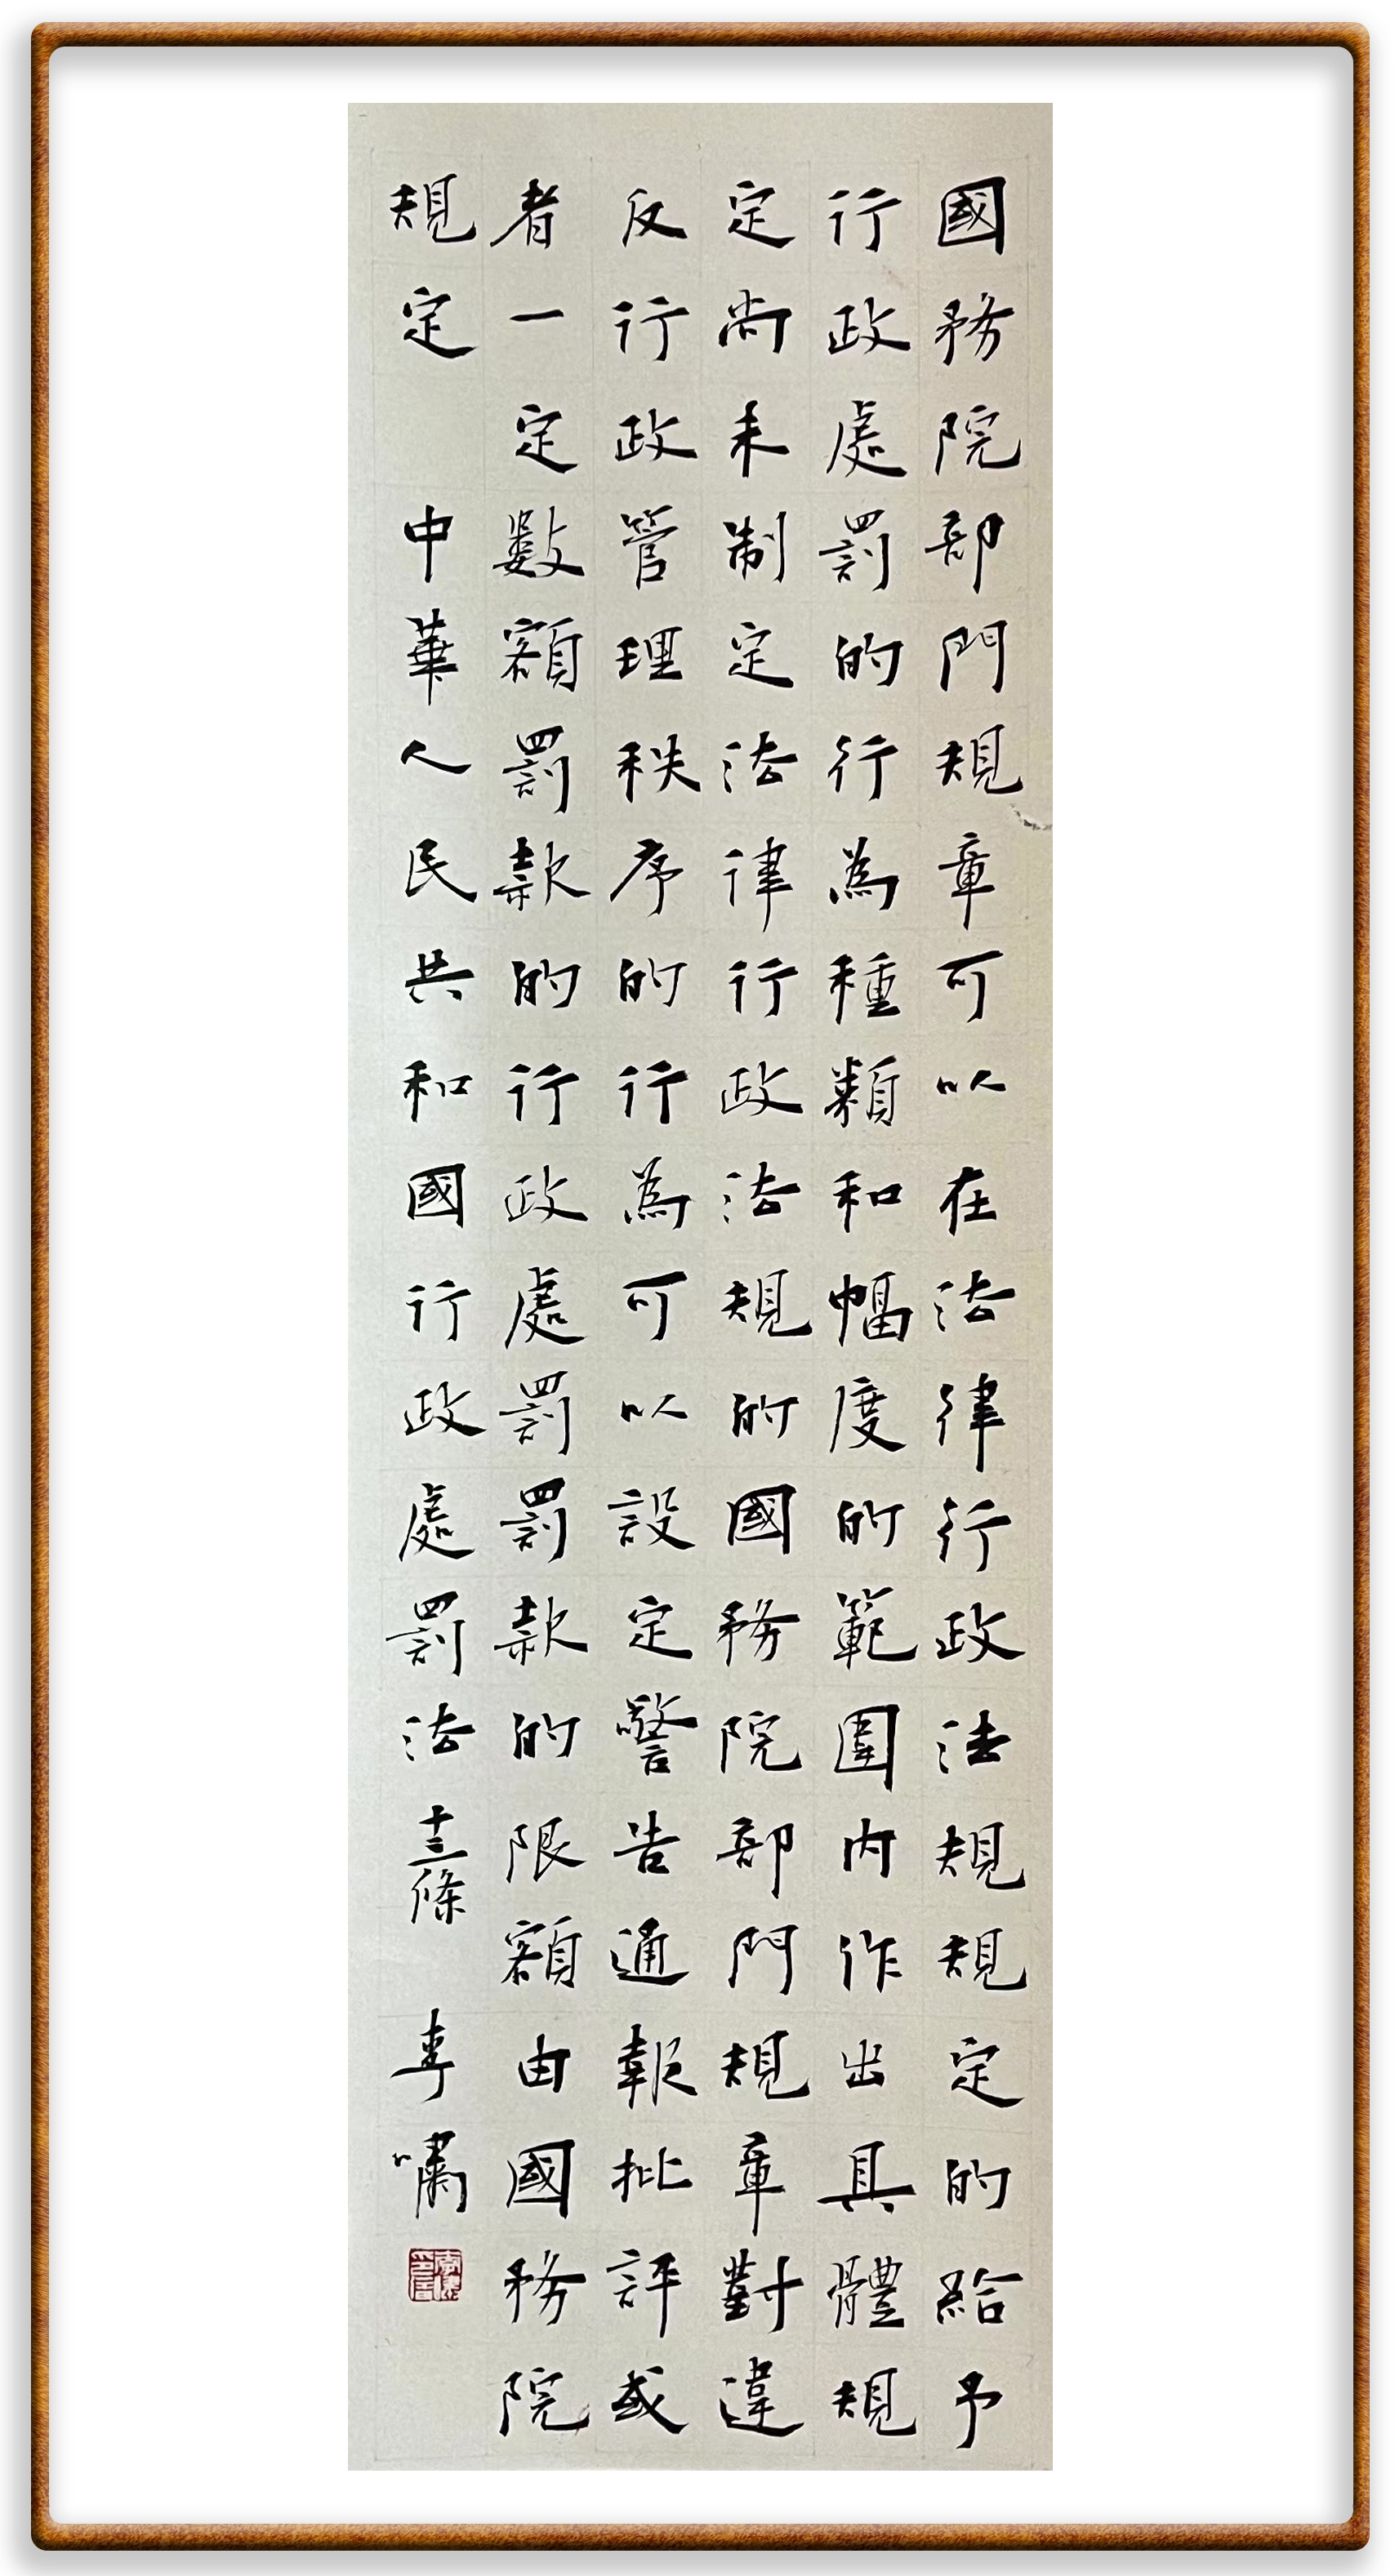 國務院部門規章可以在法律行政法規規定的給予
行政處罰的行為種類和幅度的範圍內作出具體規
定尚未制定法律行政法規的國務院部門規章對違
反行政管理秩序的行為可以設定警告通報批評或
者一定數額罰款的行政處罰罰款的限額由國務院
規定 中華人民共和國行政處罰法十三條 李嘯